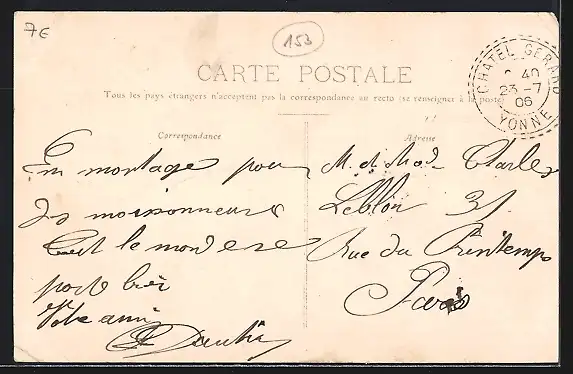 7E
153
CARTE POSTALE
Tous les pays étrangers n'acceptent pas la correspondance au recto (se renseigner à la poste)
CHATEL GERARD
40
23-7
06
YONNE
Correspondance
En montage pour
ds moissonneurs
Tout le monde se
porte bien
Votre ami
Adresse
M. et Mad. Charles
Leblon 31
Rue du Printemps
Paris